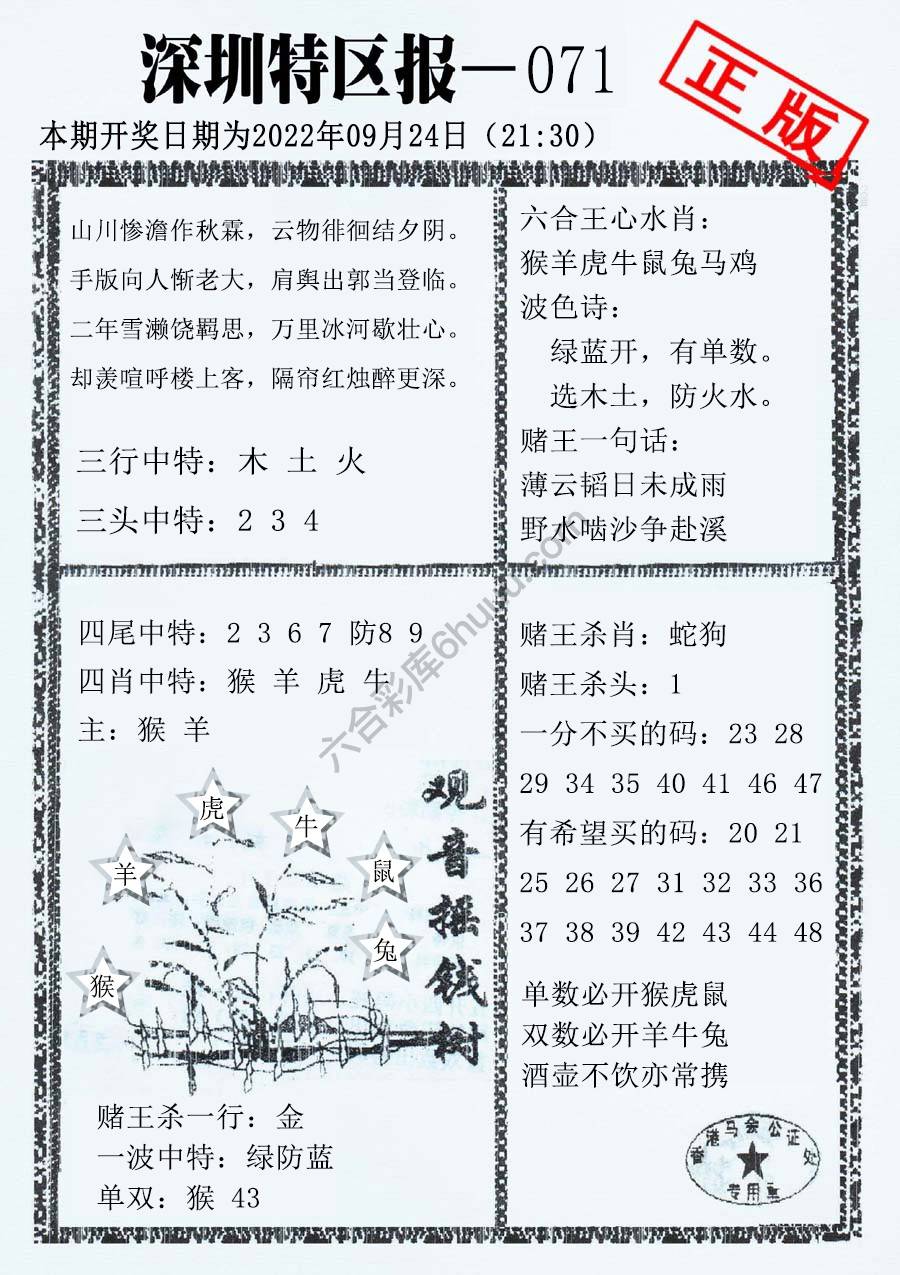 深圳特区报—071
正版
本期开奖日期为2022年09月24日（21:30）
山川惨澹作秋霖，云物徘徊结夕阴。
手版向人惭老大，肩舆出郭当登临。
二年雪濑饶羁思，万里冰河歇壮心。
却羡喧呼楼上客，隔帘红烛醉更深。
三行中特：木 土 火
三头中特：2 3 4
六合王心水肖：
猴羊虎牛鼠兔马鸡
波色诗：
绿蓝开，有单数。
选木土，防火水。
赌王一句话：
薄云韬日未成雨
野水啮沙争赴溪
四尾中特：2 3 6 7 防8 9
四肖中特：猴 羊 虎 牛
主：猴 羊
虎
牛
羊
鼠
兔
猴
观音摇钱树
赌王杀一行：金
一波中特：绿防蓝
单双：猴 43
赌王杀肖：蛇狗
赌王杀头：1
一分不买的码：23 28
29 34 35 40 41 46 47
有希望买的码：20 21
25 26 27 31 32 33 36
37 38 39 42 43 44 48
单数必开猴虎鼠
双数必开羊牛兔
酒壶不饮亦常携
香港马会公证处
专用章
六合彩库6huuu.com